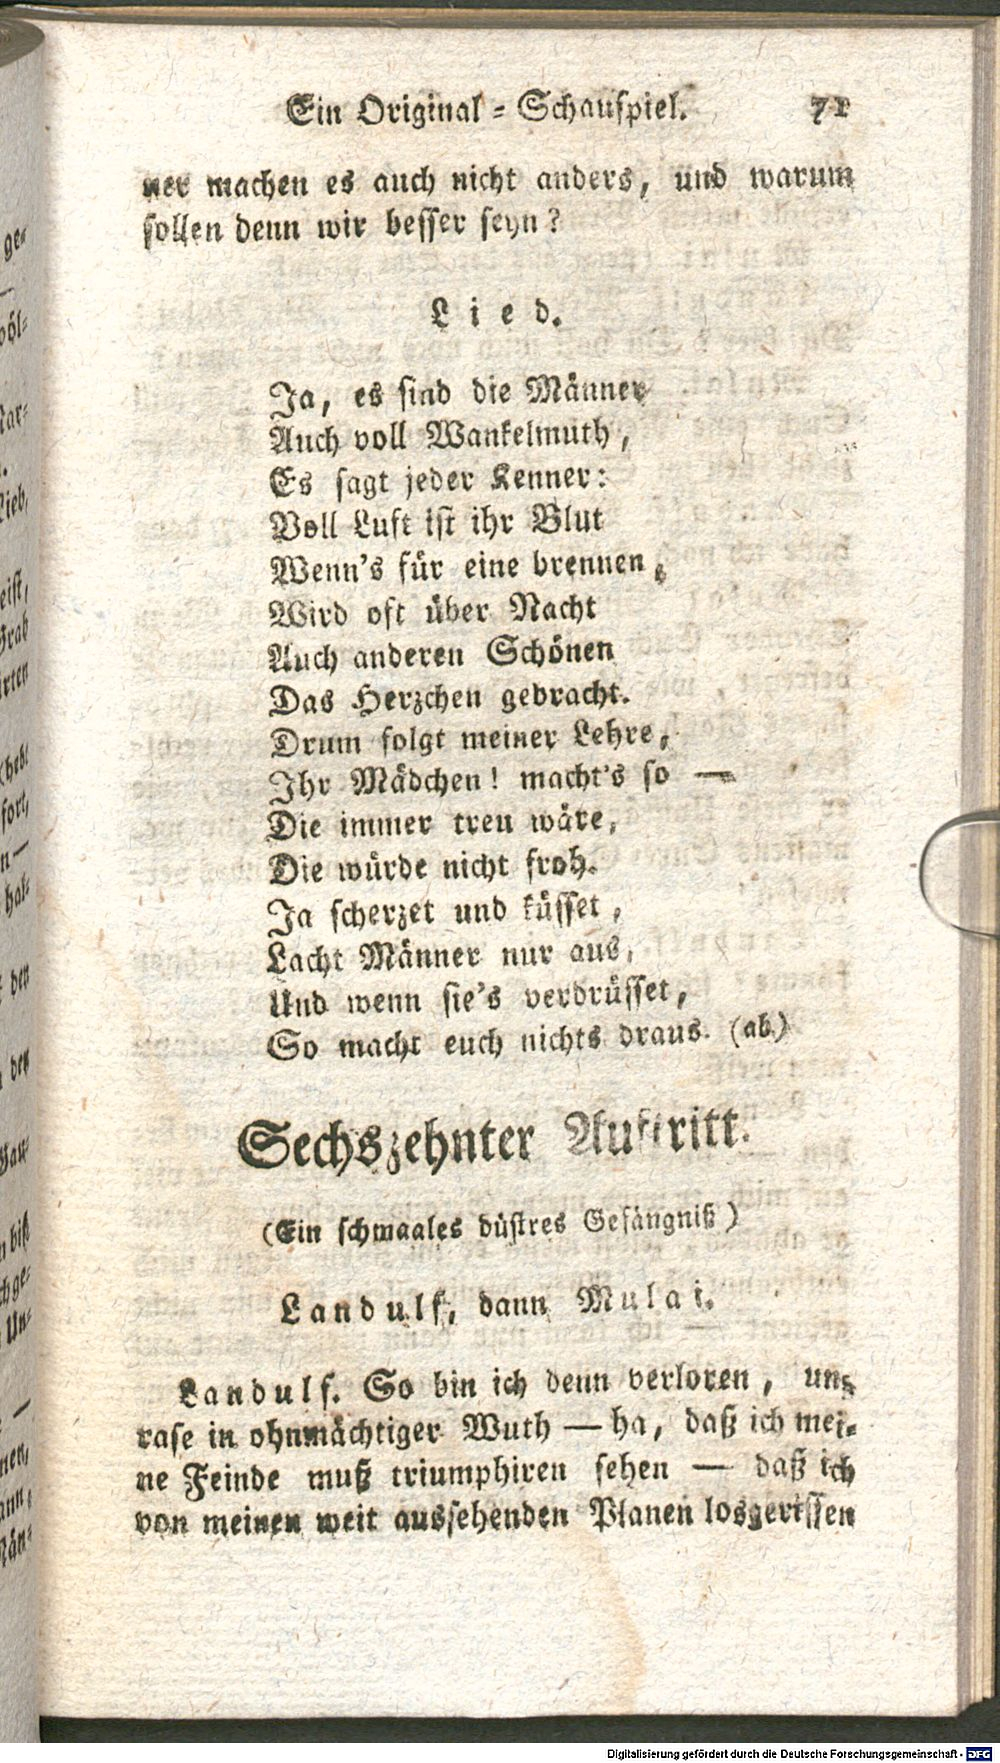 Ein Original-Schauspiel. 71
ner machen es auch nicht anders, und warum
sollen denn wir besser seyn?
Lied.
Ja, es sind die Männer
Auch voll Wankelmuth,
Es sagt jeder Kenner:
Voll Luft ist ihr Blut
Wenn's für eine brennen,
Wird oft über Nacht
Auch anderen Schönen
Das Herzchen gebracht.
Drum folgt meiner Lehre,
Ihr Mädchen! macht's so —
Die immer treu wäre,
Die würde nicht froh.
Ja scherzet und küsset,
Lacht Männer nur aus,
Und wenn sie's verdrüsset,
So macht euch nichts draus. (ab.)
Sechszehnter Auftritt.
(Ein schmaales düstres Gefängniß)
Landulf, dann Mulai.
Landulf. So bin ich denn verloren, und
rase in ohnmächtiger Wuth — ha, daß ich mei-
ne Feinde muß triumphiren sehen — daß ich
von meinen weit aussehenden Planen losgerissen
ge-
—
öl-
ar-
Lieb,
eist,
Grab
rten
(hebt
fort,
n—
hal-
den
den
Bau-
n biß
chge-
Un-
—
nen,
ann,
Män-
Digitalisierung gefördert durch die Deutsche Forschungsgemeinschaft - DFG